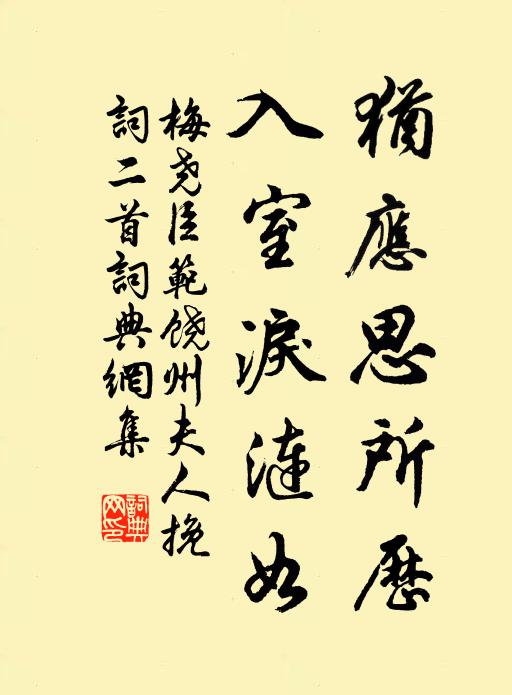 猶應思所歷
入室淚漣如
梅尧臣範饶州夫人挽
詞二首詞典網集
詞典
网印